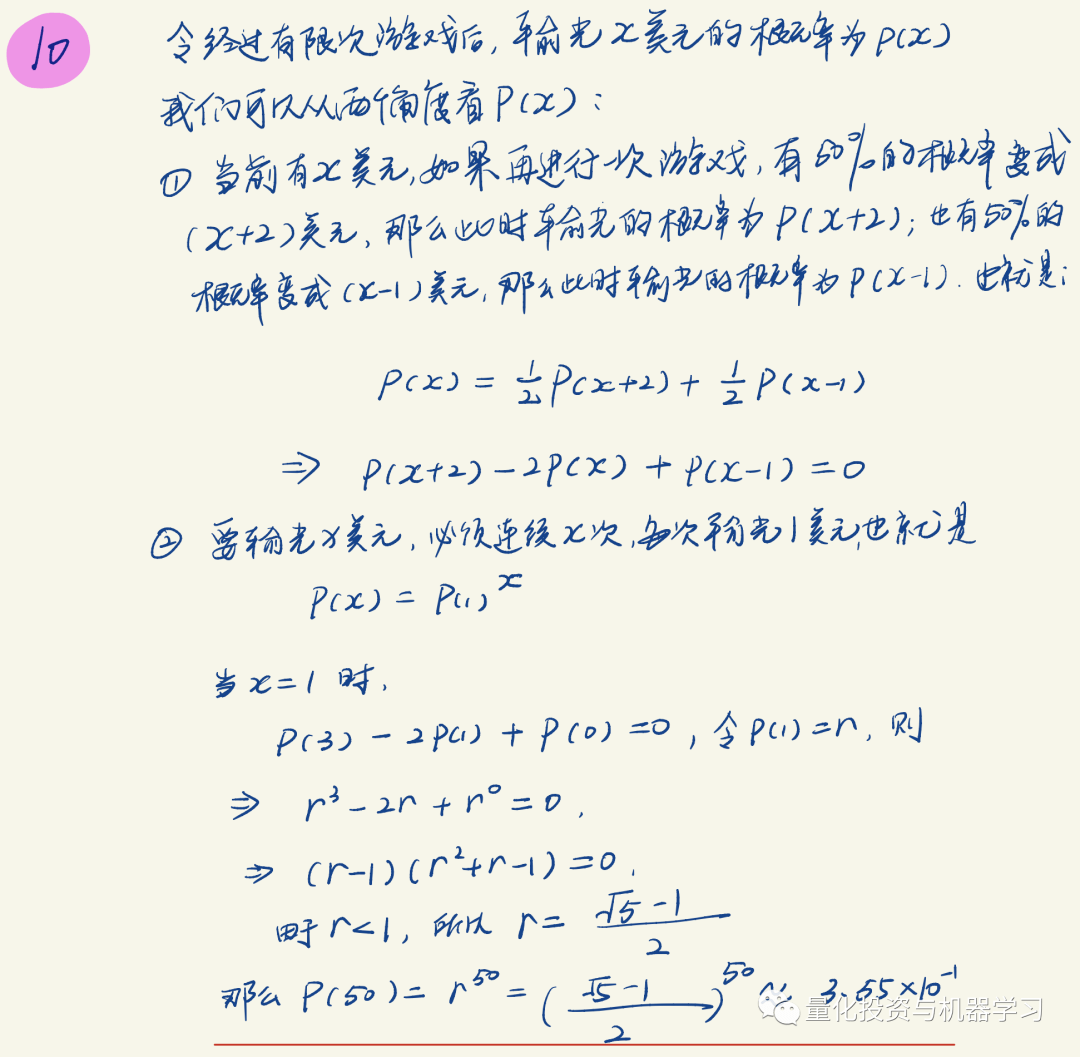 10
令经过有限次游戏后，输光x美元的概率为P(x)
我们可以从两个角度看P(x)：
① 当前有x美元，如果再进行一次游戏，有50%的概率变成
(x+2)美元，那么此时输光的概率为P(x+2)；也有50%的
概率变成(x-1)美元，那么此时输光的概率为P(x-1). 也就是：
P(x) = 1/2 P(x+2) + 1/2 P(x-1)
⇒ P(x+2) - 2P(x) + P(x-1) = 0
② 要输光x美元，必须连续x次，每次输光1美元，也就是
P(x) = P(1)^x
当x=1时，
P(3) - 2P(1) + P(0) = 0，令P(1)=r，则
⇒ r³ - 2r + r⁰ = 0，
⇒ (r-1)(r²+r-1) = 0，
由于r<1，所以 r = (√5-1)/2
那么 P(50) = r⁵⁰ = ((√5-1)/2)⁵⁰ ≈ 3.55×10⁻¹
量化投资与机器学习